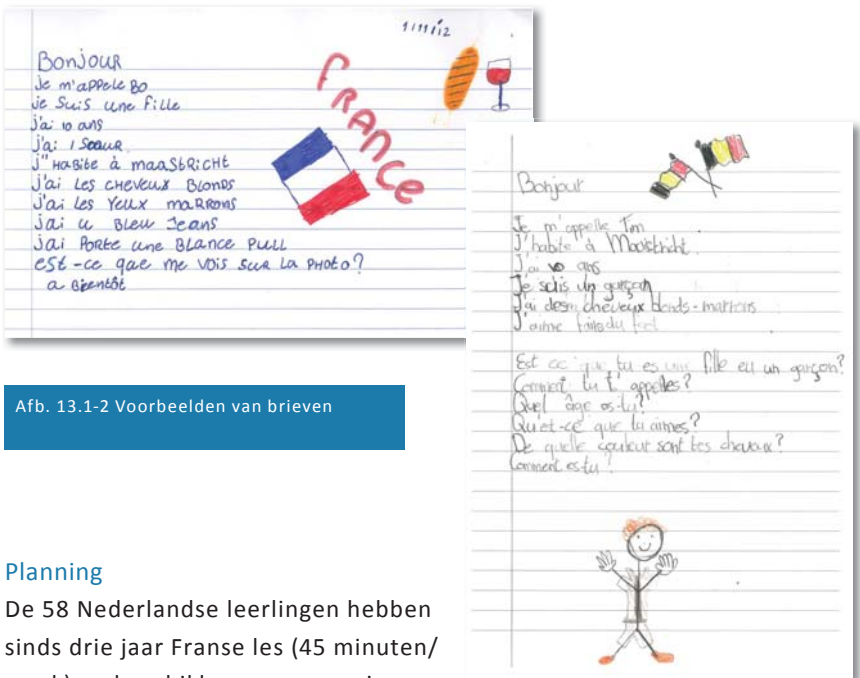 1/11/12
Bonjour
je m'appele Bo
je Suis une Fille
j'ai 10 ans
j'ai 1 Soeur
j'Habite à maastricht
j'ai Les cheveux Blonds
j'ai Les Yeux marrons
jai u Bleu Jeans
jai Porte une Blance Pull
est-ce que me vois sur La Photo?
a Bientôt
FRANCE
Bonjour
Je m'appelle Tim
J'habite à Maastricht
J'ai 10 ans
Je suis un garçon
J'ai des cheveux blonds-marrons
J'aime faire du foot
Est ce que tu es une fille ou un garçon?
Comment tu t'appelles?
Quel âge as-tu?
Qu'et-ce que tu aimes?
De quelle couleur sont tes cheveux?
Comment es-tu?
Afb. 13.1-2 Voorbeelden van brieven
Planning
De 58 Nederlandse leerlingen hebben
sinds drie jaar Franse les (45 minuten/